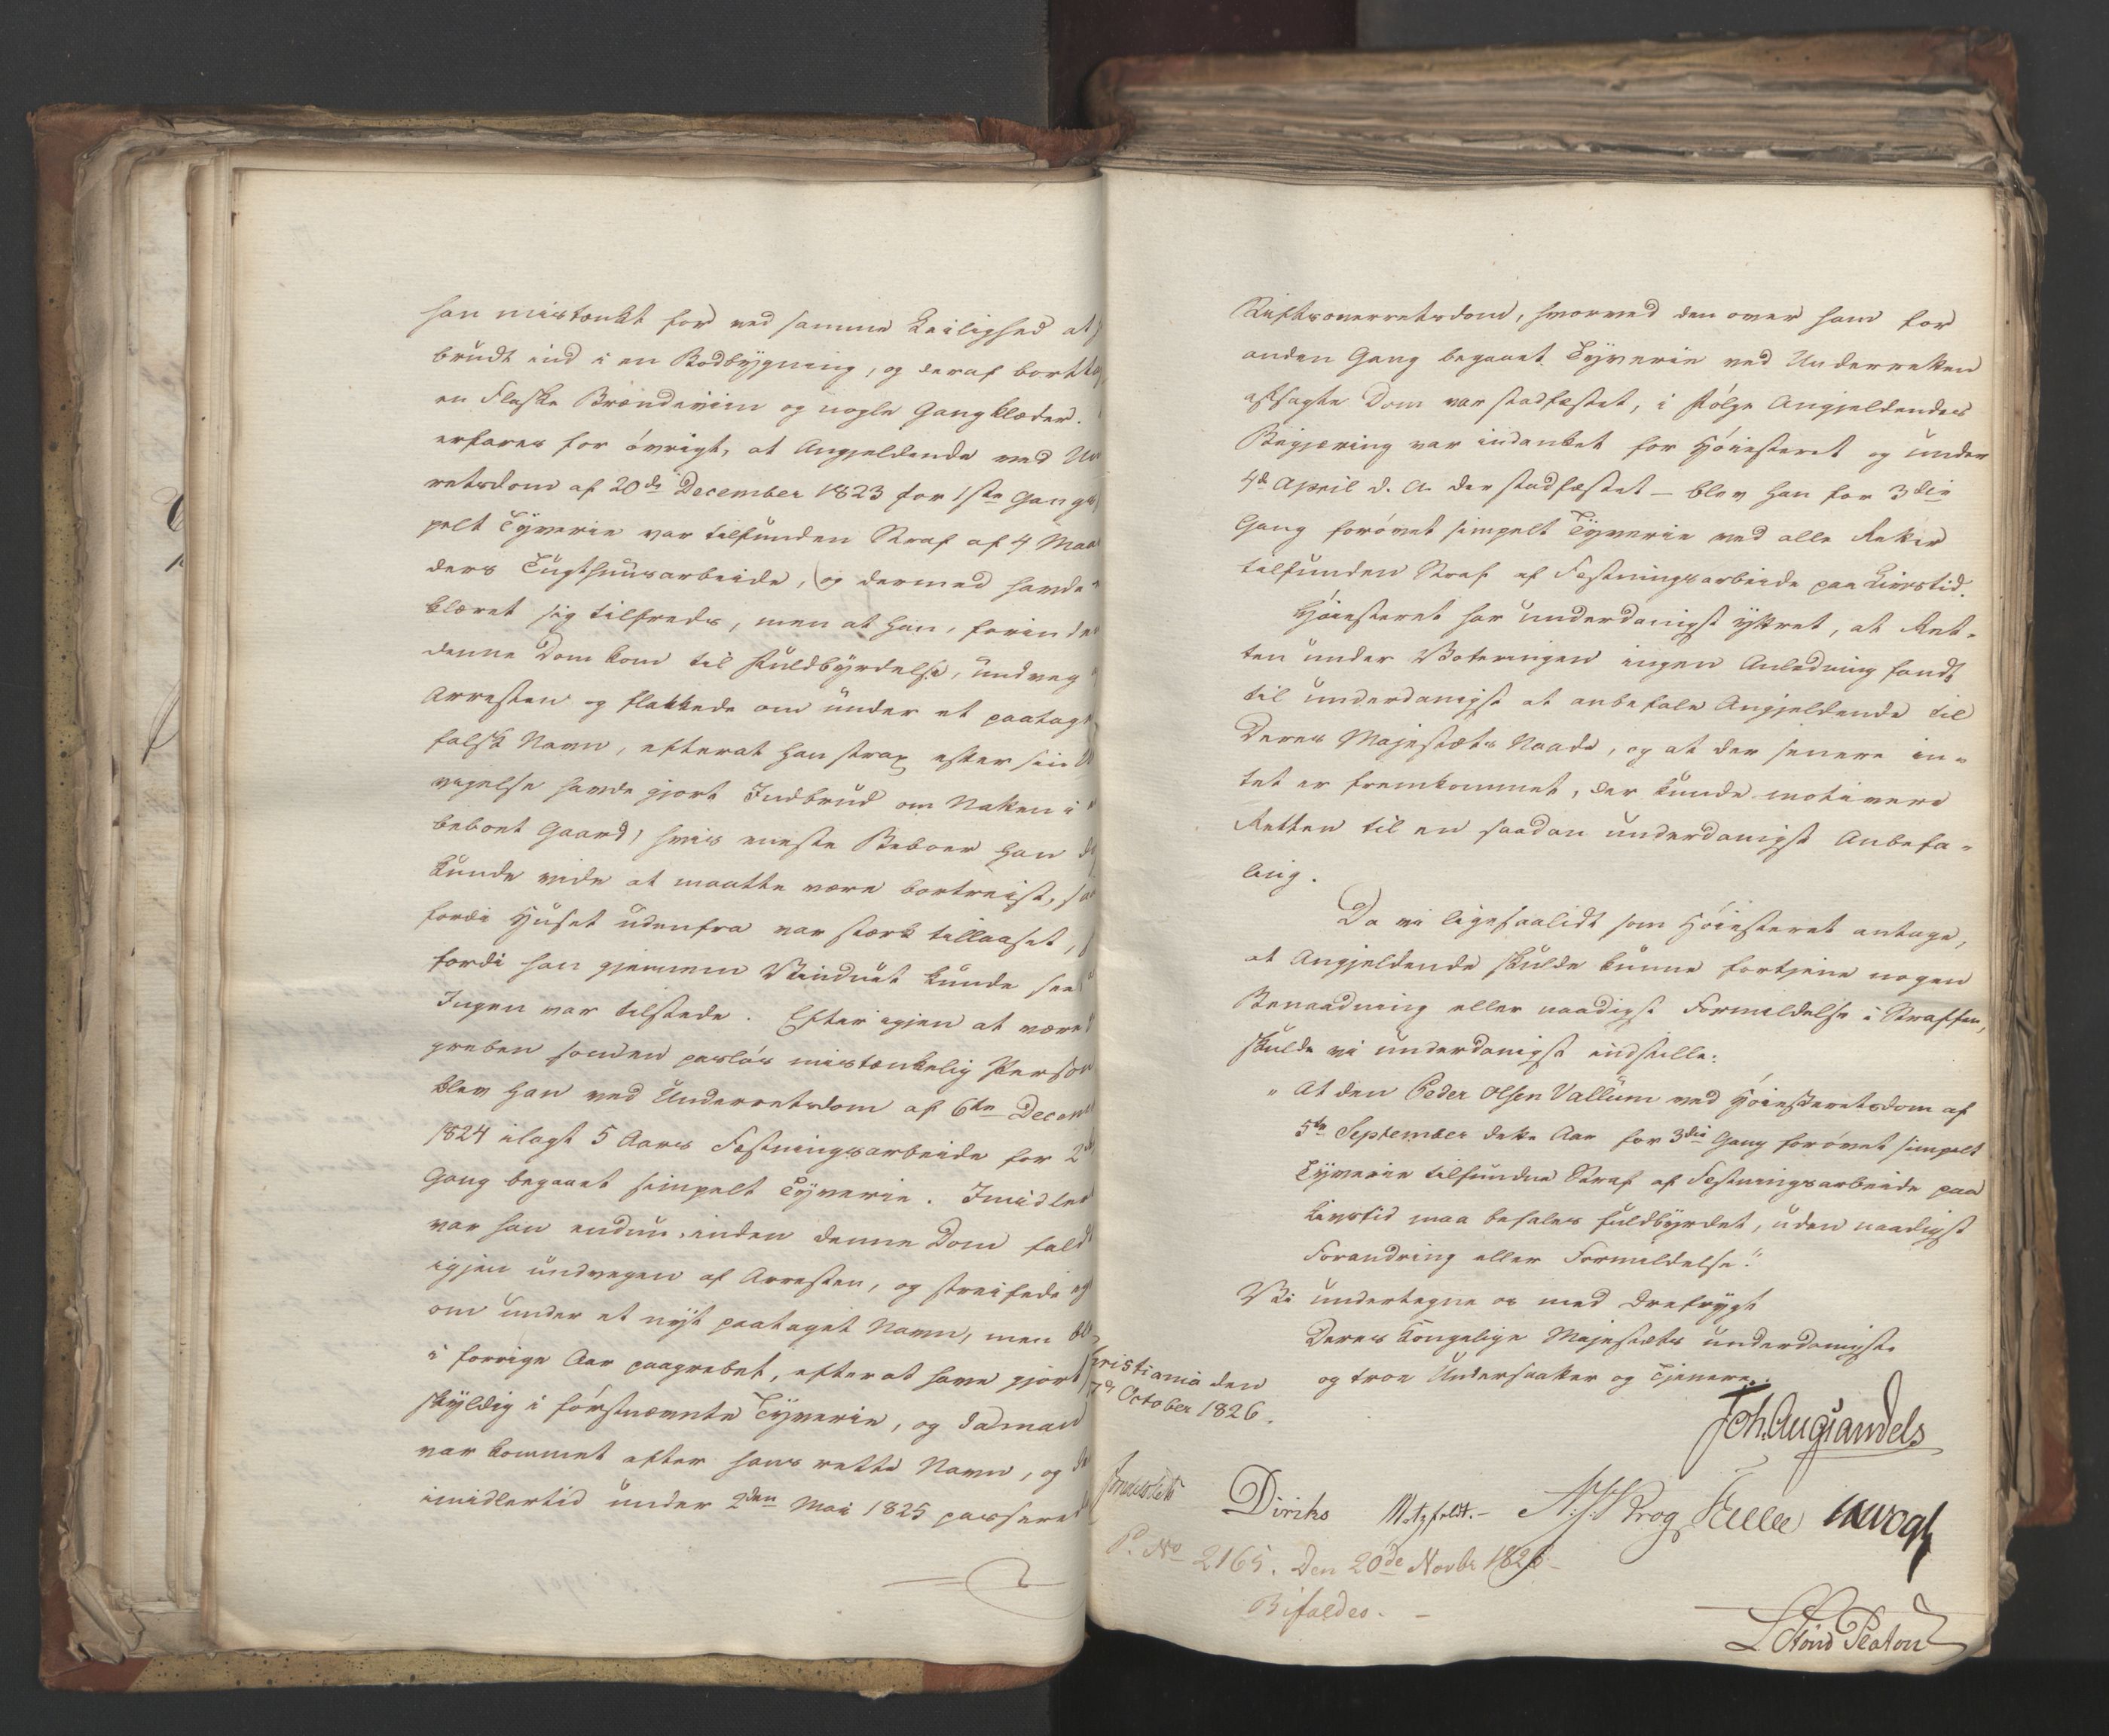 han mistænkt for ved samme Leilighed at
brudt ind i en Bodbygning, og deraf bortta
en Flaske Brændeviin og nogle Gangklæder.
erfares for øvrigt, at Angjeldende ved Un
retsdom af 20de December 1823 for 1ste Gang
pelt Tyverie var tilfunden Straf af 4 Maa
ders Tugthuusarbeide, og dermed havde
klæret sig tilfreds, men at han, forinden
denne Dom kom til Fuldbyrdelse, undveg
Arresten og flakkede om under et paataget
falsk Navn, efterat han strax efter sin U
vigelse havde gjort Indbrud om Natten i
beboet Gaard, hvis eneste Beboer han
kunde vide at maatte være bortreist,
fordi Huset udenfra var stærk tillaaset,
fordi han gjennem Vinduet kunde see
Ingen var tilstede. Efter igjen at være
greben som den pasløs mistænkelig Person
blev han ved Underretsdom af 6te Decem
1824 ilagt 5 Aars Fæstningsarbeide for 2
Gang begaaet simpelt Tyverie. Imidler
var han endnu, inden denne Dom faldt
igjen undvegen af Arresten, og streifede
om under et nyt paataget Navn, men bl
i forrige Aar paagrebet, efterat have gjort
skyldig i førstnævnte Tyverie, og da man
var kommet efter hans rette Navn, og de
imidlertid under 2den Mai 1825 passere
Stiftsoverretsdom, hvorved den over ham for
anden Gang begaaet Tyverie ved Underretten
afsagte Dom var stadfæstet, i Følge Angjeldendes
Begjæring var indanket for Høiesteret og under
4de April d. A. der stadfæstet – blev han for 3die
Gang forøvet simpelt Tyverie ved alle Retter
tilfunden Straf af Fæstningsarbeide paa Livstid.
Høiesteret har underdanigst yttret, at Ret-
ten under Voteringen ingen Anledning fandt
til underdanigst at anbefale Angjeldende til
Deres Majestæts Naade, og at der senere in-
tet er fremkommet, der kunde motivere
Retten til en saadan underdanigst Anbefa-
ling.
Da vi ligesaalidt som Høiesteret antage,
at Angjeldende skulde kunne fortjene nogen
Benaadning eller naadigst Formildelse i Straffen,
skulde vi underdanigst indstille:
" At den Peder Olsen Vallum ved Høiesteretsdom af
5te September dette Aar for 3die Gang forøvet simpelt
Tyverie tilfundne Straf af Fæstningsarbeide paa
Livstid maa befales fuldbyrdet, uden naadigst
Forandring eller Formildelse."
Vi undertegne os med Drefrygt
Deres Kongelige Majestæts underdanigste
og troe Undersaatter og Tjenere.
hristiania den
7de October 1826.
Joh. Aug Sandels
Diriks Motzfeldt. – A. J. Krog Vogt
P. No 2165. Den 20de Novbr 1826 –
Bifaldes. –